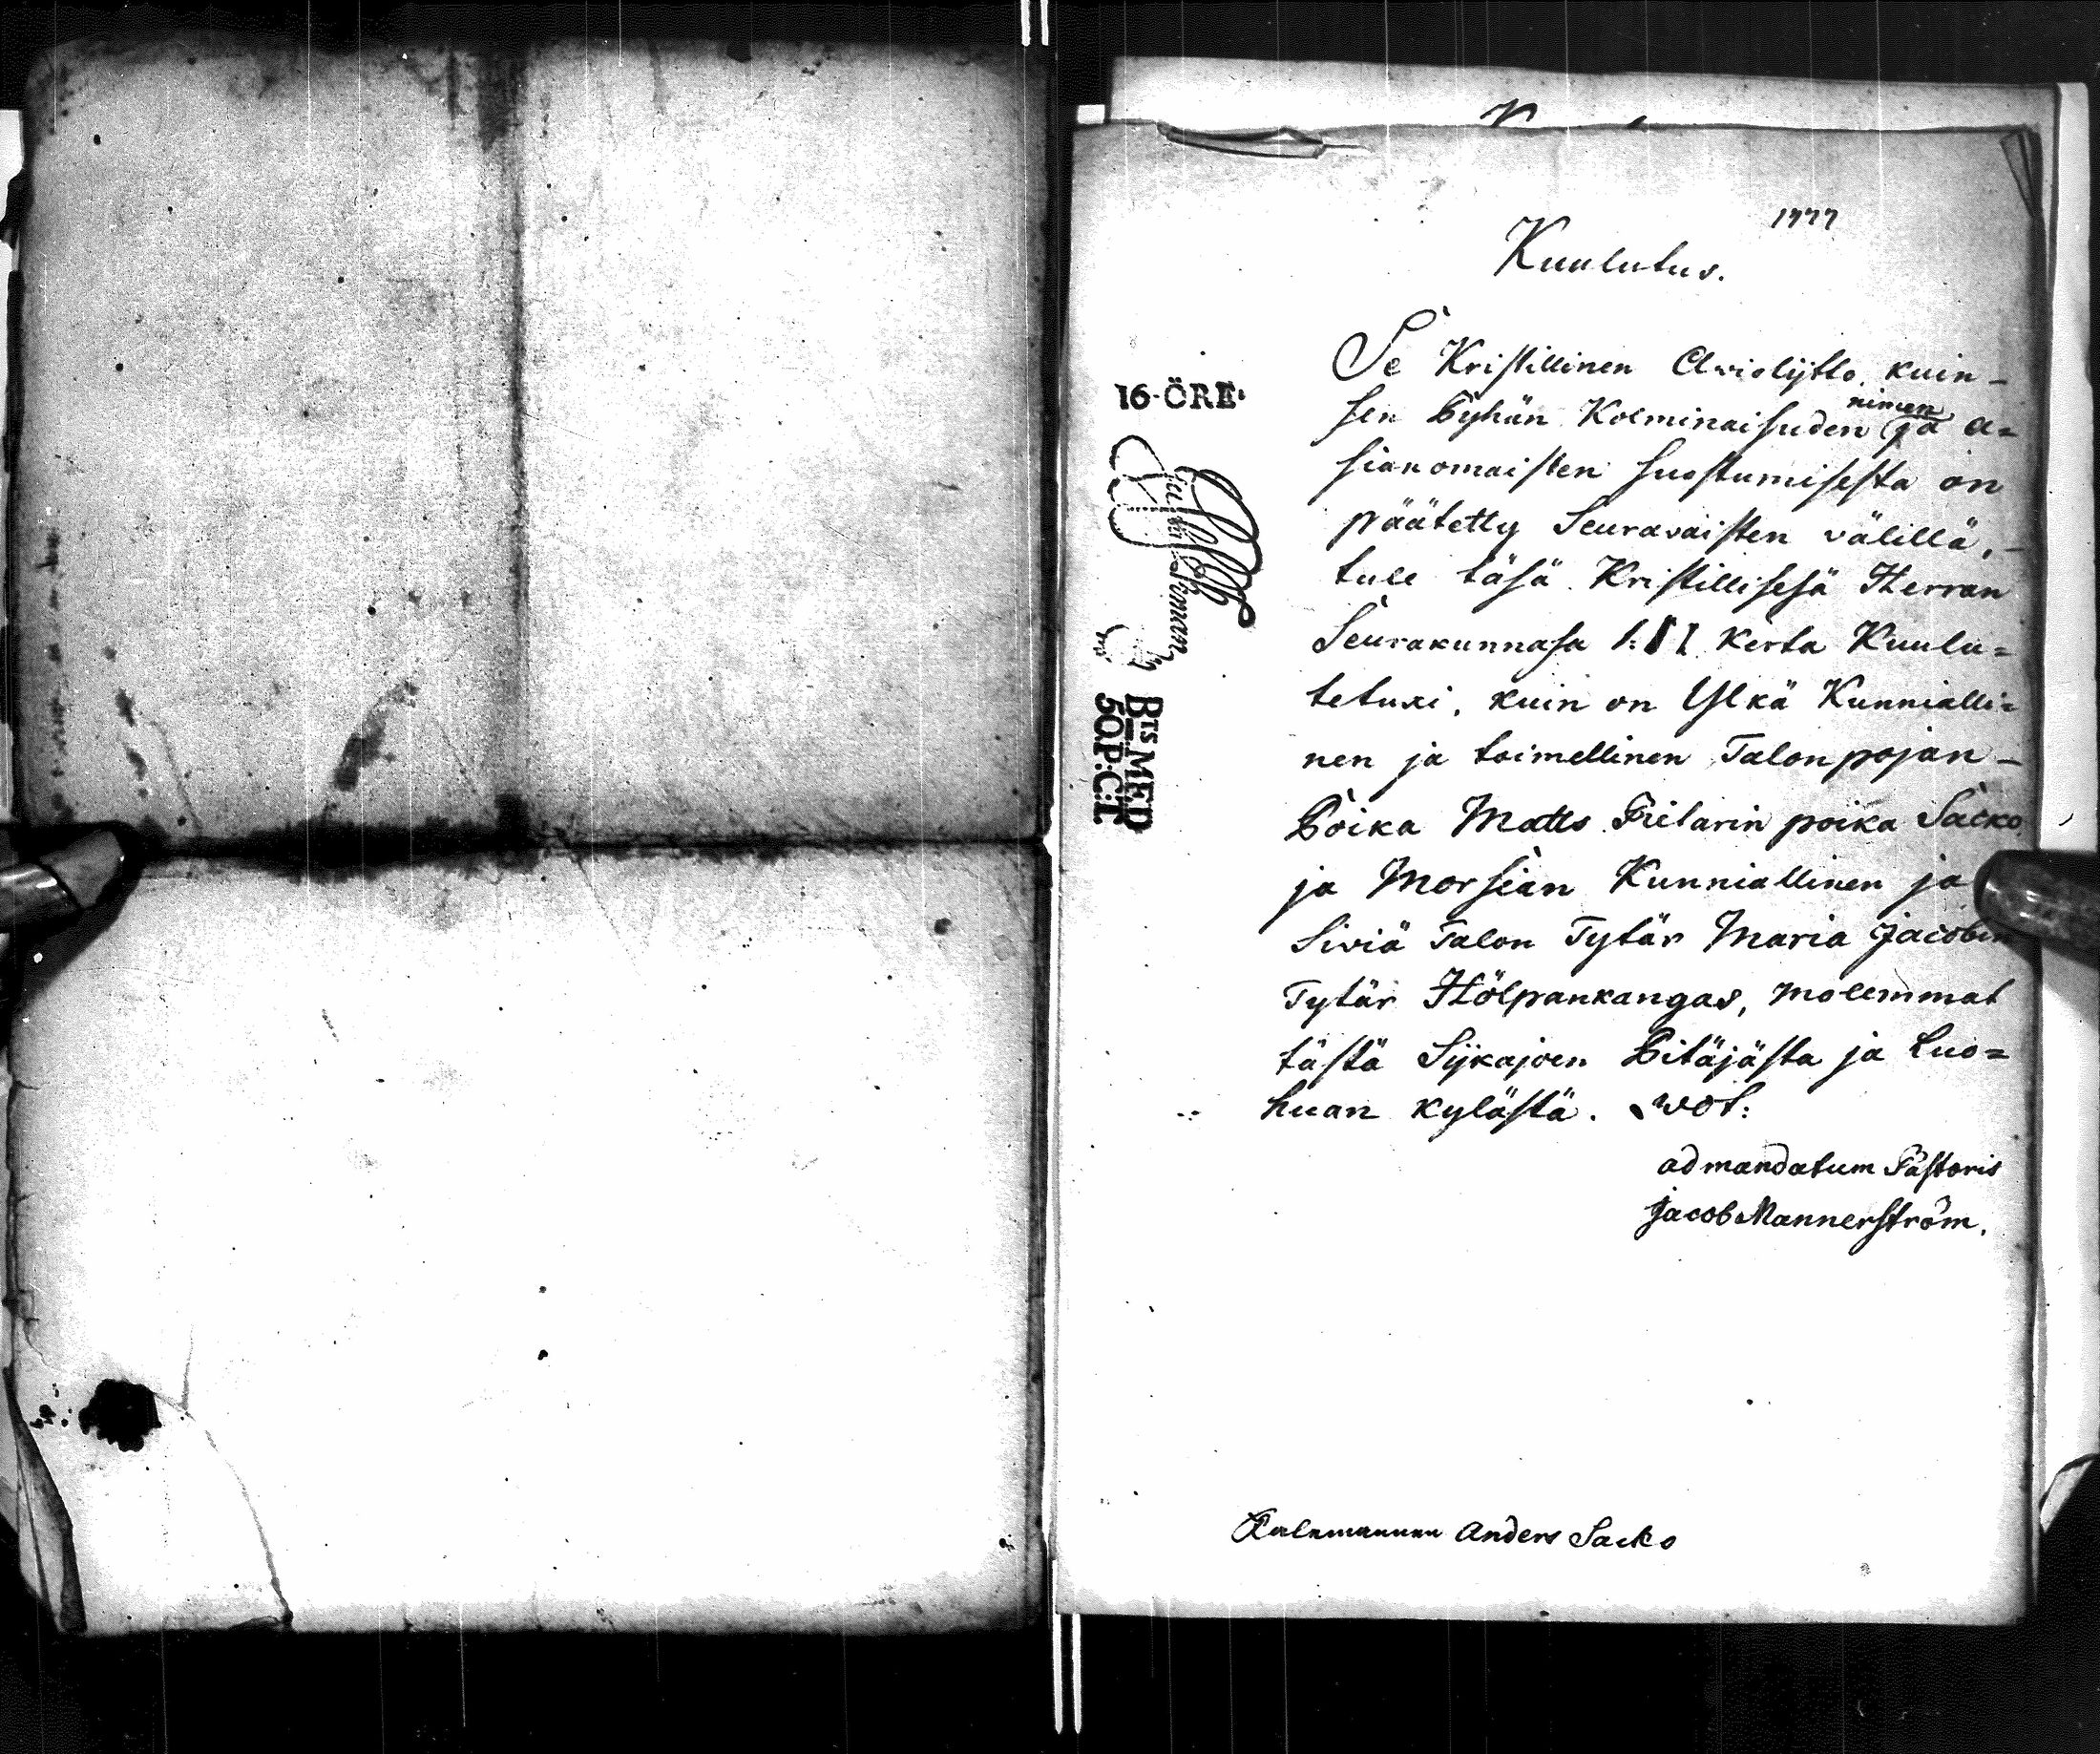 1777
Kuulutus.
Se Kristillinen Awiolijtto, kuin-
sen Pyhän Kolminaisuden nimen ja a=
sianomaisten suostumisesta on
päätetty Seuravaisten välillä,-
tule täsä Kristillisesä Herran
Seurakunnasa 1: kerta Kuulu=
tetuxi, kuin on Ylkä Kunnialli=
nen ja toimellinen Talonpojan-
Poika Matts Fielarin poika Sacko
ja Morsian Kunniallinen ja
Siviä Talon Tytär Maria Jacobin
Tytär Hölpankangas, molemmat
tästä Sijkajoen Pitäjästa ja Luo=
huan kylästä. wot:
ad mandatum Pastoris
Jacob Mannerström.
Anders Sacko
16·ÖRE·
BTS MED
5QP:CT